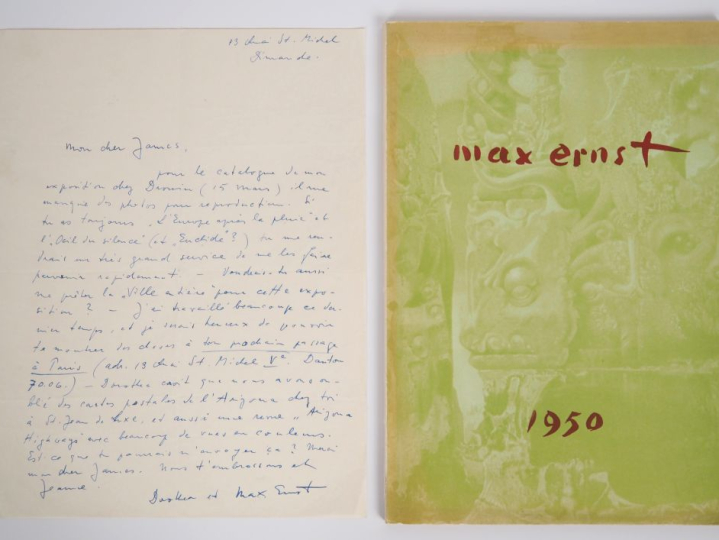 13 Quai St. Michel
Dimanche.
Mon cher James,
pour le catalogue de mon
exposition chez Drouin (15 mars) il me
manque des photos pour reproduction. Si
tu as toujours „L'Europe après la pluie" et
l'„Oeil du silence" (et „Euclide"?) tu me ren-
drais un très grand service de me les faire
parvenir rapidement. – Voudrais-tu aussi
me prêter la „Ville entière" pour cette expo-
sition? – J'ai travaillé beaucoup ce der-
nier temps, et je serais heureux de pouvoir
te montrer des choses à ton prochain passage
à Paris (adr. 13 Quai St. Michel Ve. Danton
70.06.) – Dorothea croit que nous avons ou-
blié des cartes postales de l'Arizona chez toi
à St. Jean de Luxe, et aussi une revue „Arizona
Highways" avec beaucoup de vues en couleurs.
Est-ce que tu pourrais m'envoyer ça? Merci
mon cher James. Nous t'embrassons et
Jeanne.
Dorothea et Max Ernst
max ernst
1950